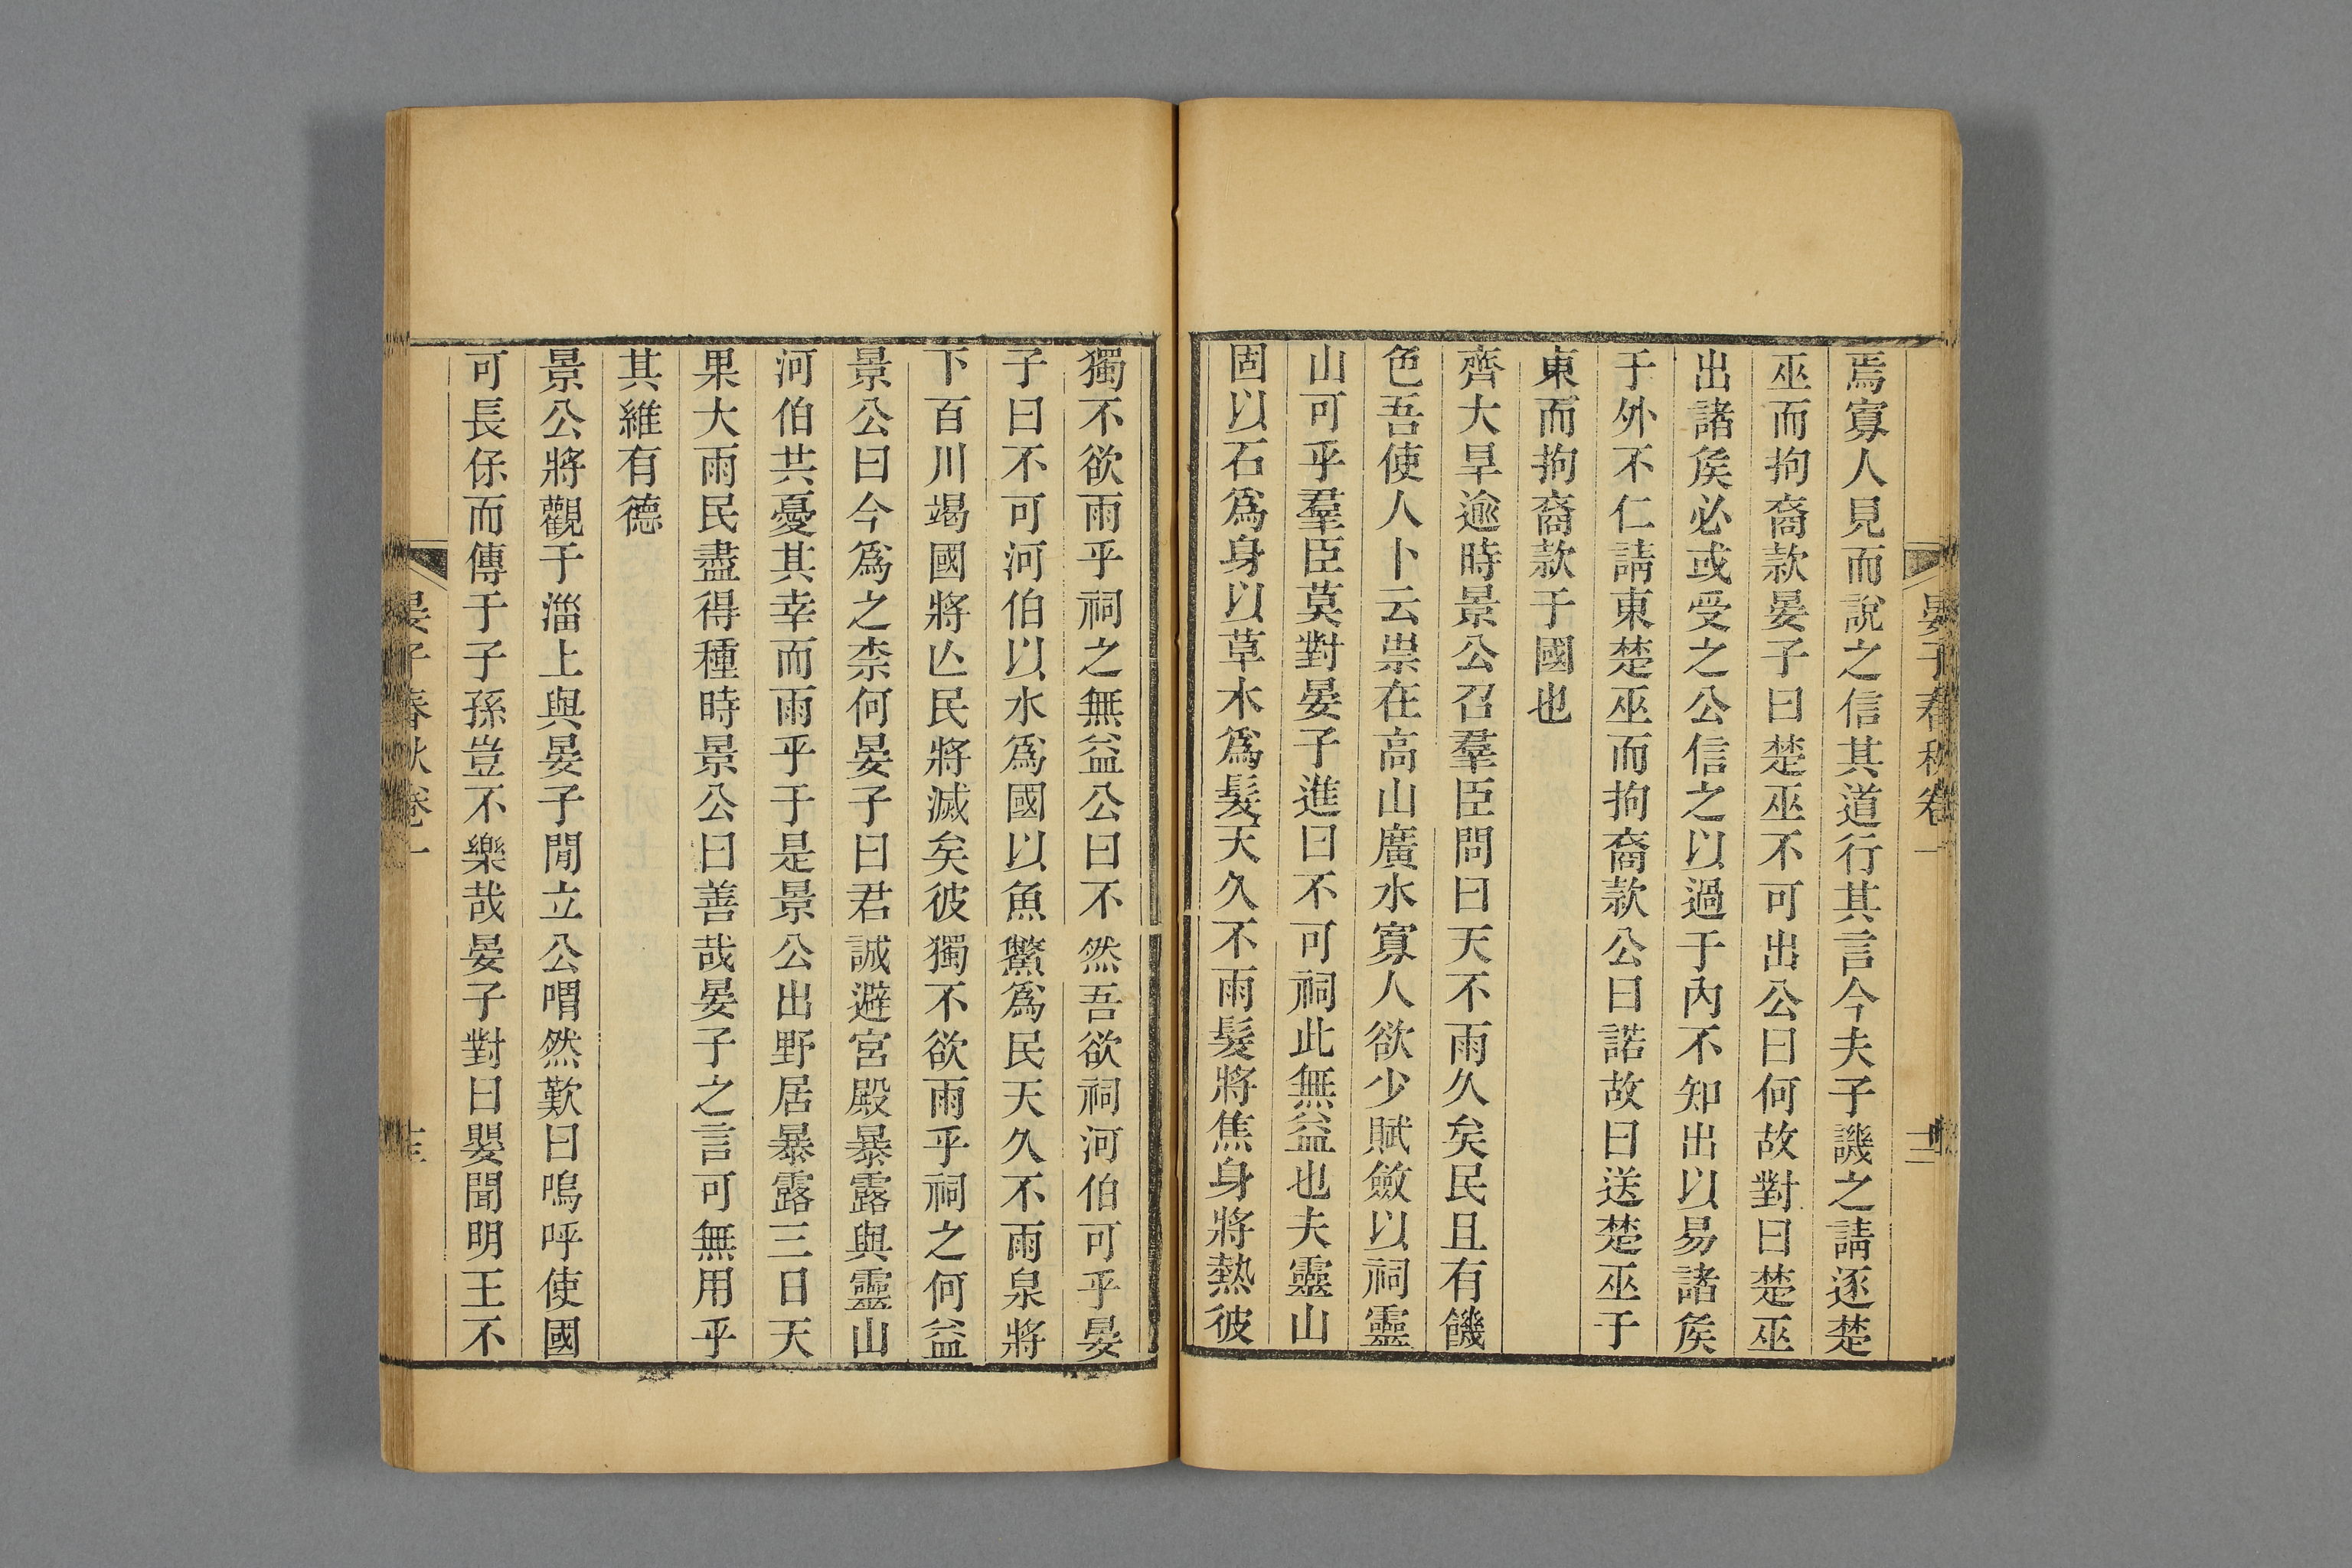 晏子春秋卷一
焉寡人見而說之信其道行其言今夫子譏之請逐楚
巫而拘裔款晏子曰楚巫不可出公曰何故對曰楚巫
出諸矦必或受之公信之以過于內不知出以易諸矦
于外不仁請東楚巫而拘裔款公曰諾故曰送楚巫于
東而拘裔款于國也
齊大旱逾時景公召羣臣問曰天不雨久矣民且有饑
色吾使人卜云祟在高山廣水寡人欲少賦斂以祠靈
山可乎羣臣莫對晏子進曰不可祠此無益也夫靈山
固以石爲身以草木爲髮天久不雨髮將焦身將熱彼
獨不欲雨乎祠之無益公曰不然吾欲祠河伯可乎晏
子曰不可河伯以水爲國以魚鱉爲民天久不雨泉將
下百川竭國將亾民將滅矣彼獨不欲雨乎祠之何益
景公曰今爲之柰何晏子曰君誠避宮殿暴露與靈山
河伯共憂其幸而雨乎于是景公出野居暴露三日天
果大雨民盡得種時景公曰善哉晏子之言可無用乎
其維有德
景公將觀于淄上與晏子閒立公喟然歎曰嗚呼使國
可長保而傳于子孫豈不樂哉晏子對曰嬰聞明王不
晏子春秋卷一